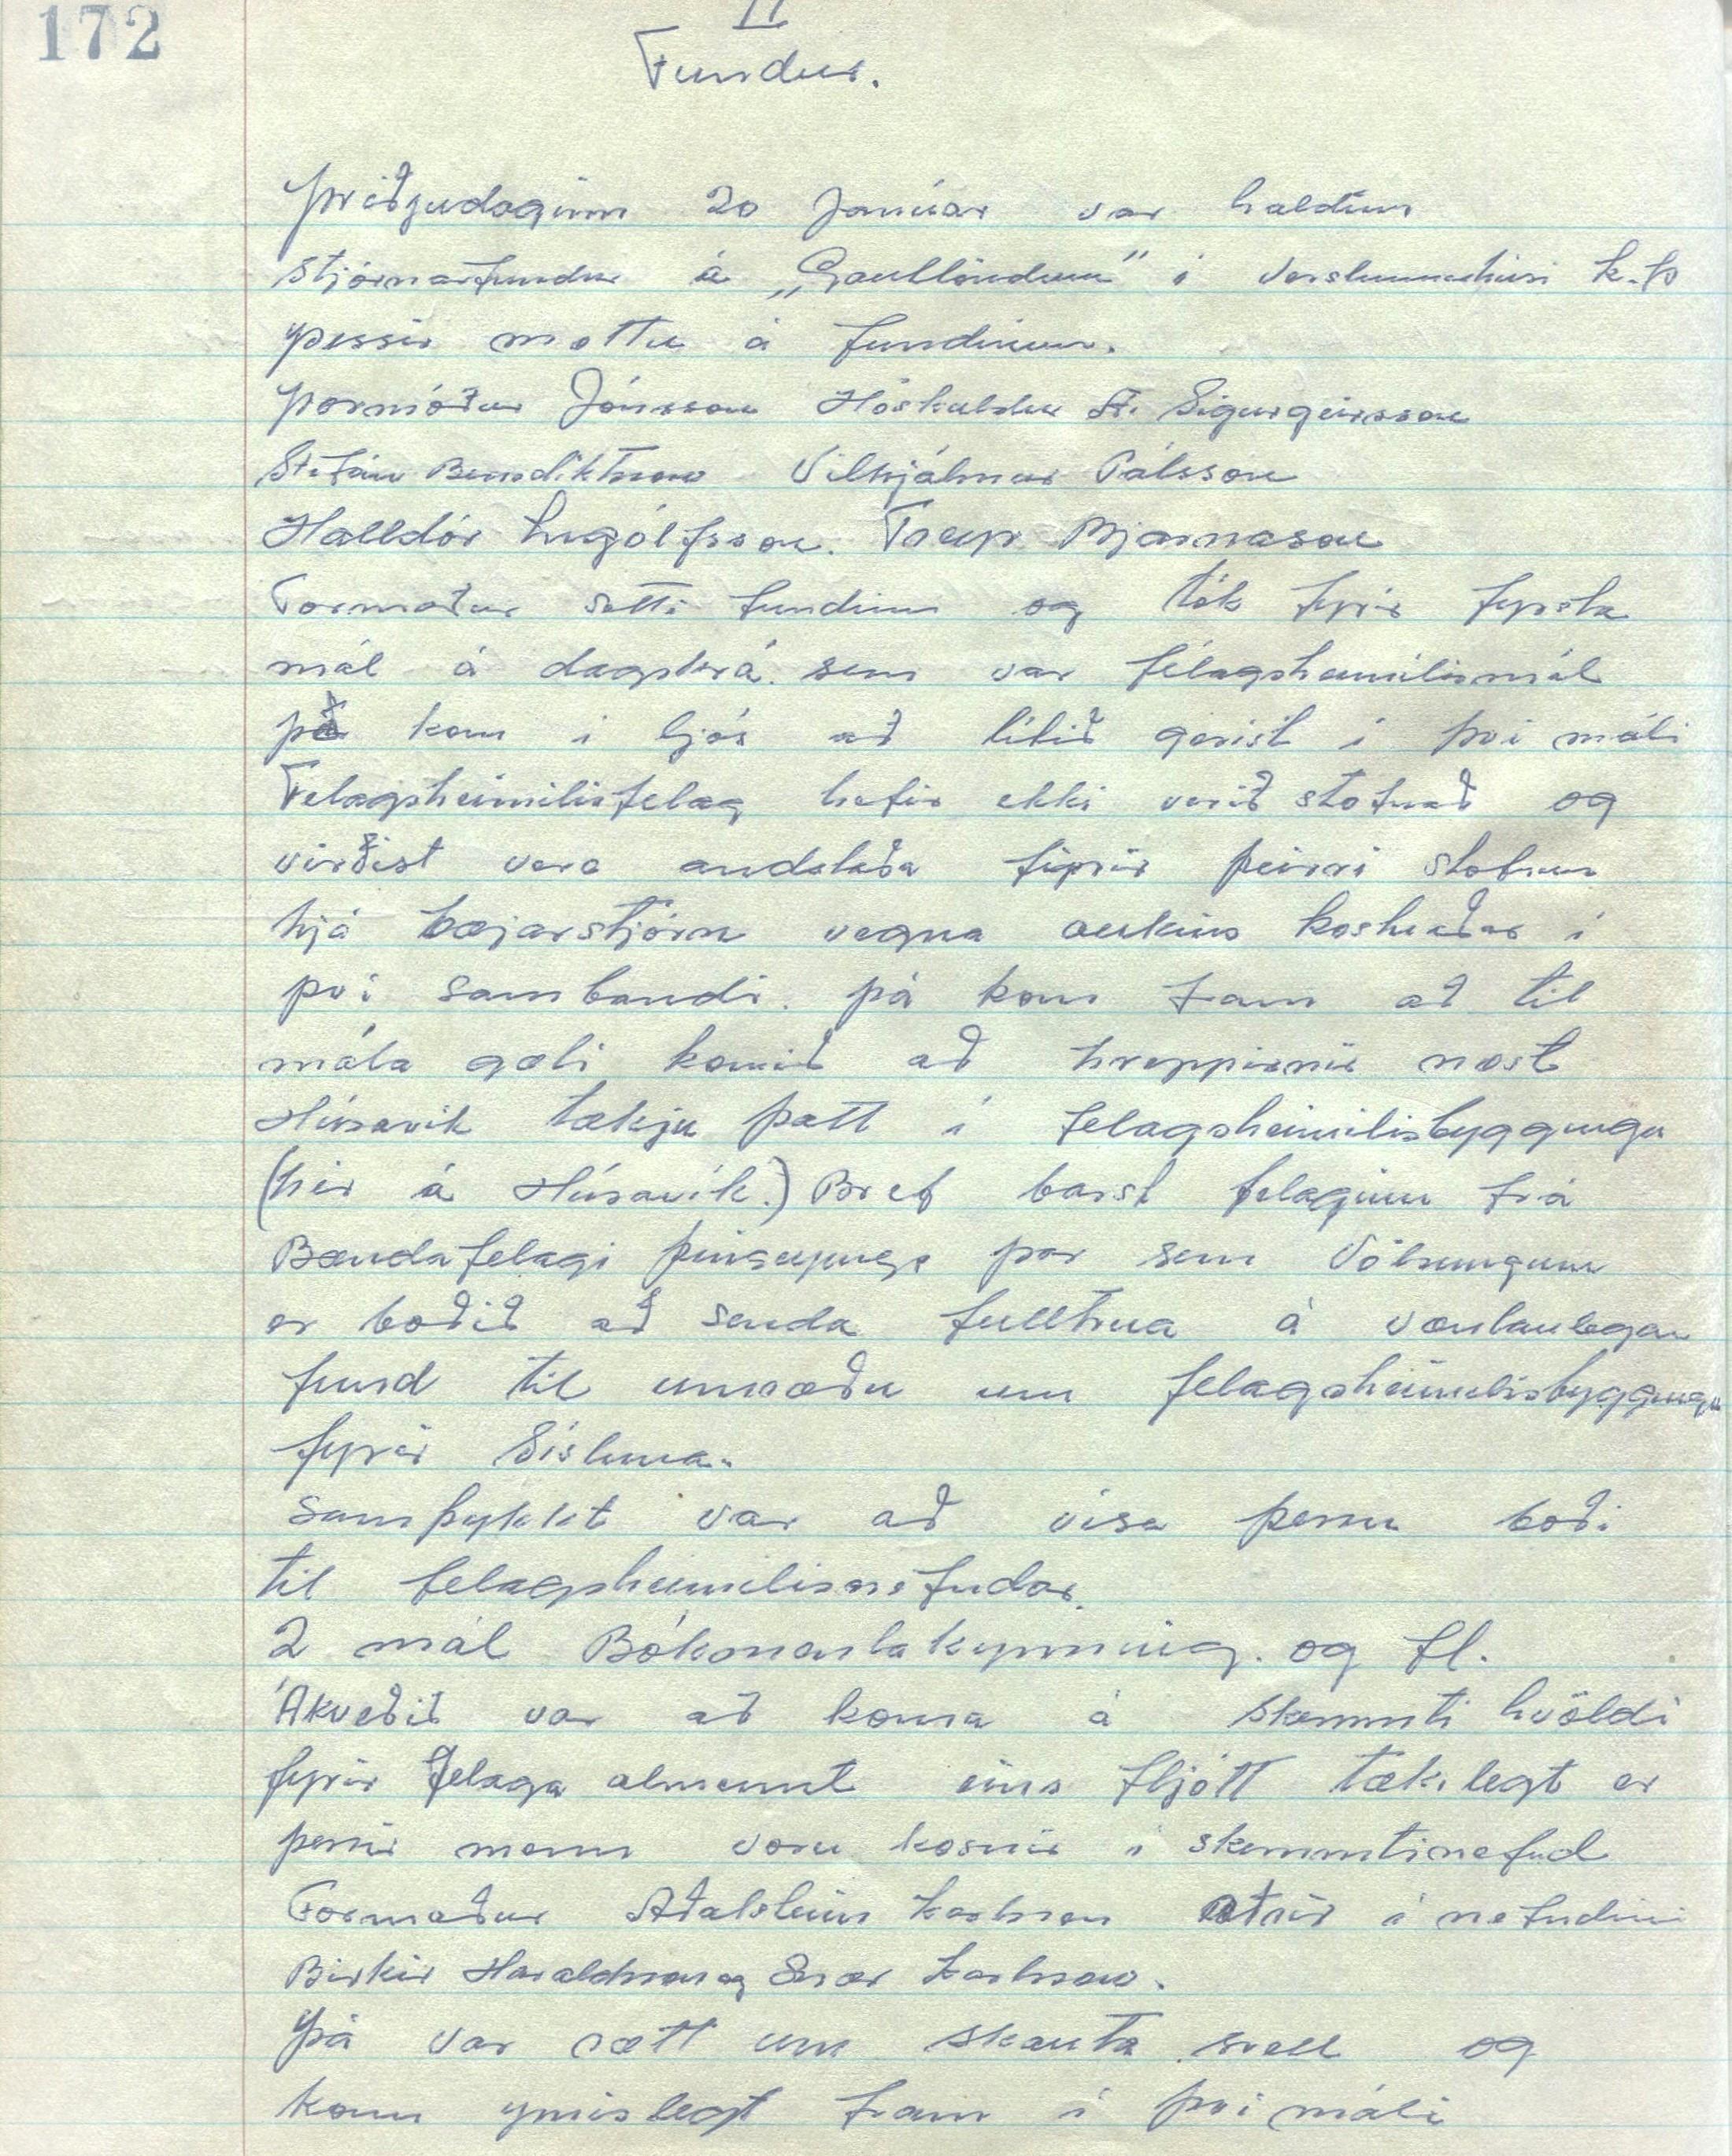 172
II
Fundur.
Þriðjudaginn 20 Janúar var haldinn
stjórnarfundur á „Gaullöndum" í Verslunarhúsi k.þ
Þessir mættu á fundinum.
Þormóður Jónsson Höskuldur St. Sigurgeirsson
Stefán Benediktsson Vilhjálmur Pálsson
Halldór Ingólfsson. Freyr Bjarnason
Formaður setti fundinn og tók fyrir fyrsta
mál á dagskrá. sem var félagsheimilismál
þá kom í ljós að lítið gerist í því máli
Felagsheimilisfelag hefir ekki verið stofnað og
virðist vera andstaða fyrir þeirri stofnun
hjá bæjarstjórn vegna aukins kostnaðar í
því sambandi. þá kom fram að til
mála gæti komið að hreppirnir næst
Húsavík tækju þatt í felagsheimilisbyggingu
(hér á Húsavík.) Bref barst felaginu frá
Bændafelagi þingeyinga þar sem Völsungum
er boðið að senda fulltrua á væntanlegan
fund til umræðu um felagsheimilisbyggingu
fyrir Sísluna.
samþykkt var að vísa þessu boði
til felagsheimilisnefndar.
2 mál Bókmentakynning. og fl.
Ákveðið var að koma á skemmti kvöldi
fyrir felaga almennt eins fljótt tækilegt er
þessir menn voru kosnir í skemmtinefnd
Formaður Aðalsteinn Karlsson aðrir í nefndini
Birkir Haraldsson og Snær Karlsson.
Þá var rætt um skauta svell og
kom ymislegt fram í því máli